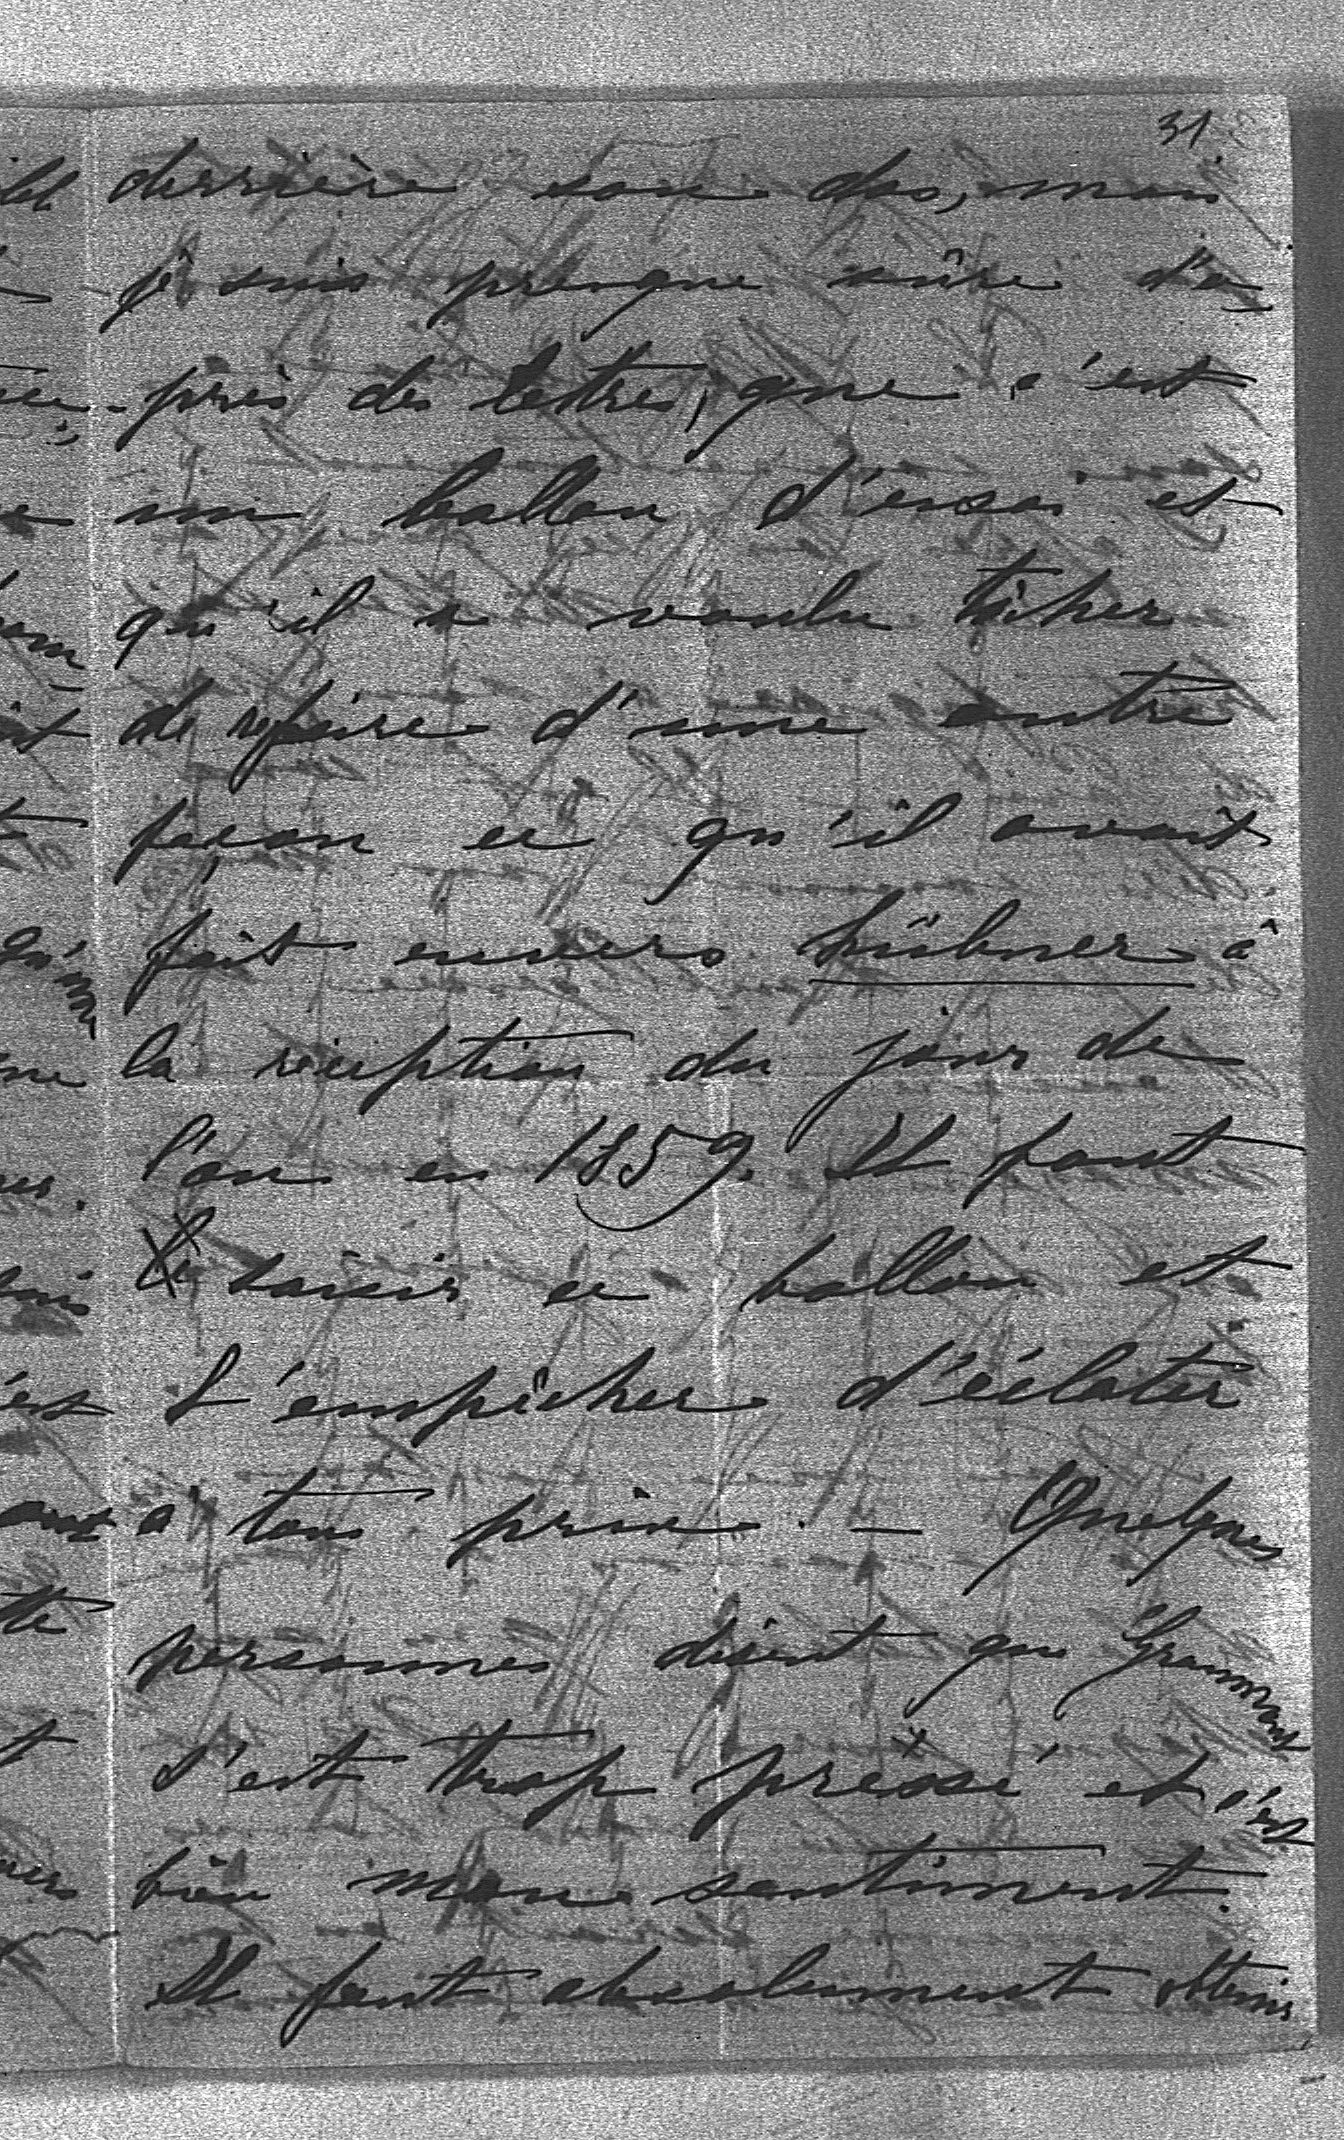 31
derrière son dos, mais
je suis presque sûre d'a
près des lettres, que c'est
un ballon d'essai et
qu'il a voulu tâcher
de refaire d'une autre
façon ce qu'il avait
fait envers Hübner à
la réception du jour de
l'an en 1859. Il faut
saisir ce ballon et
l'empêcher d'éclater
à tous prix. — Quelques
personnes disent que Grammont
s'est trop pressé et c'est
bien mon sentiment.
Il faut absolument obtenir